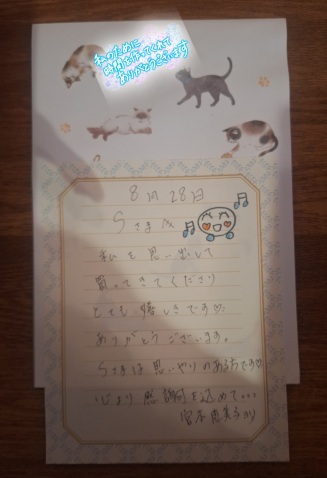 私のために
時間を作ってくれて
ありがとうございます
8月28日
Sさま
私を思い出して
買ってきてくださり
とても嬉しきですが
ありがとうございます。
Sさまは思いやりのある方ですが
心より感謝を込めて...